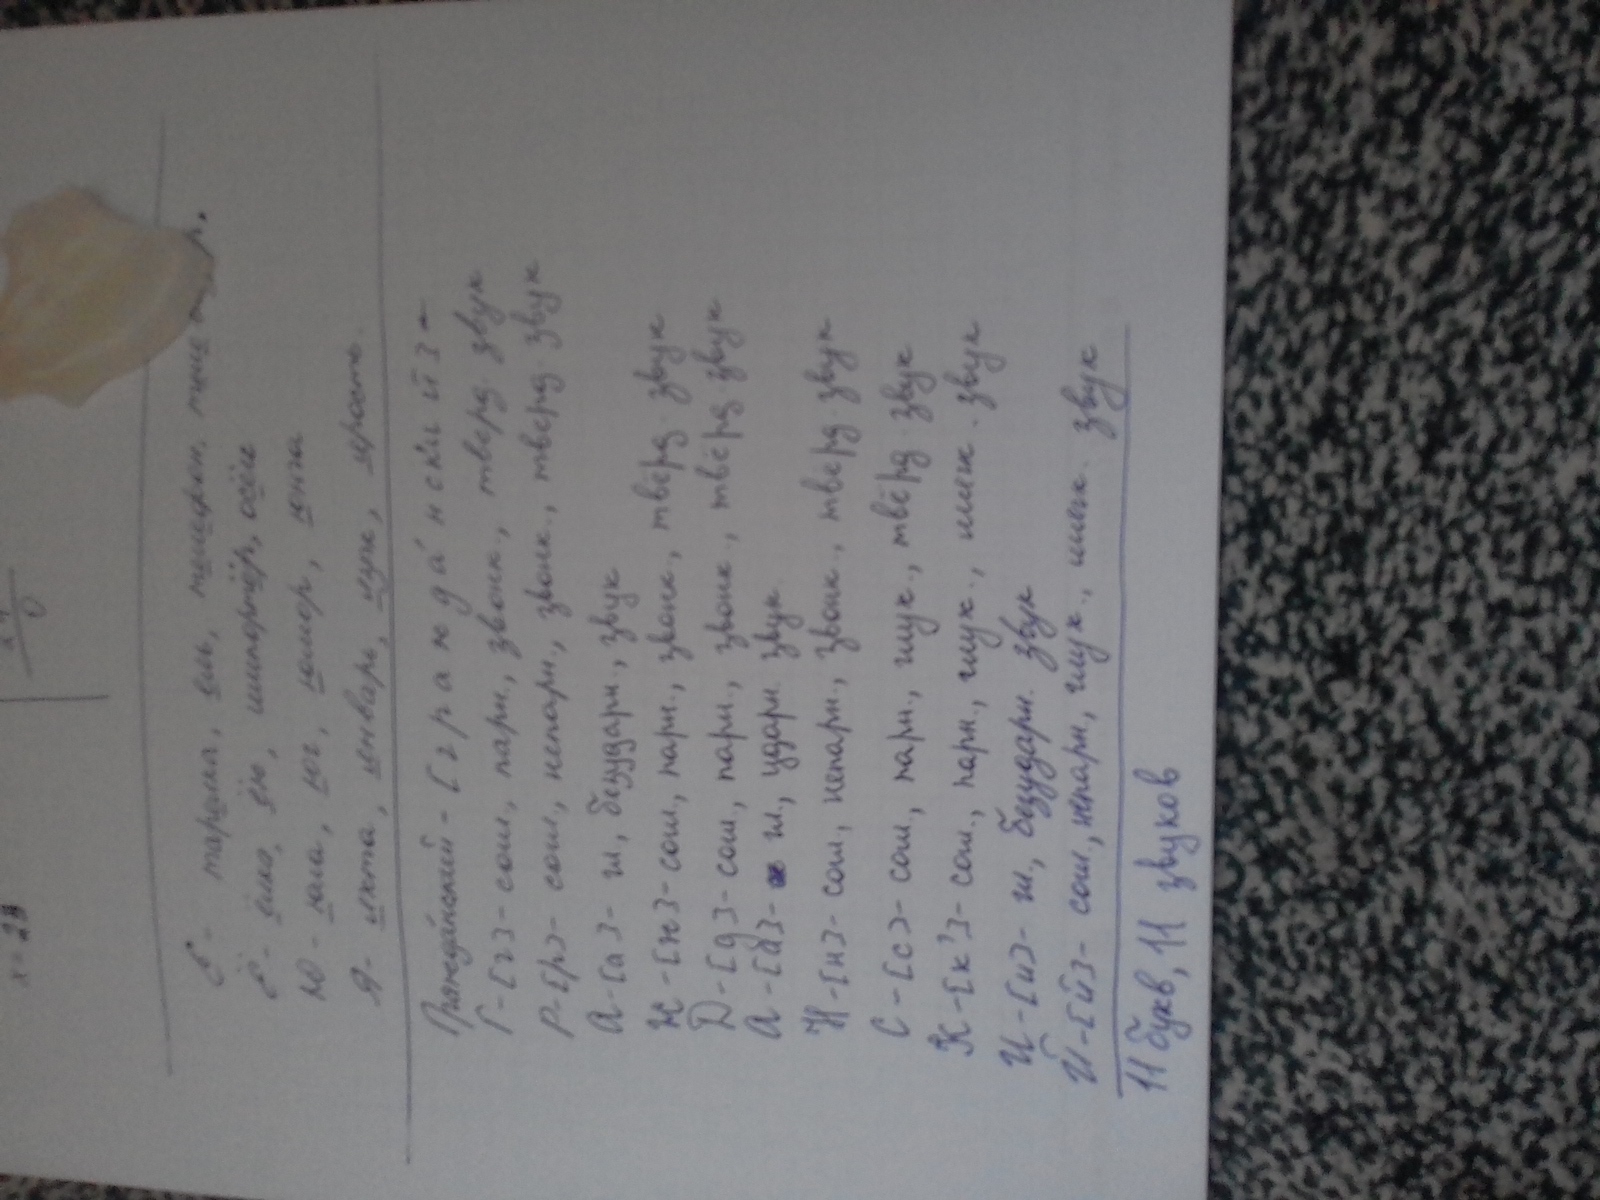 х = 2
0
Е - тарелка, ель, телефон, теле
Ё - ёлка, ёж, ёрш, осёл
Ю - юла, юг, юмор, юнга
Я - яхта, январь, ярость.
Гражданский - [г р а ж д а́ н с к' и й] -
Г - [г] - согл., парн., звонк., тверд. звук
Р - [р] - согл., непарн., звонк., тверд. звук
А - [а] - гл., безударн., звук
Ж - [ж] - согл., парн., звонк., твёрд. звук
Д - [д] - согл., парн., звонк., твёрд. звук
А - [а́] - гл., ударн. звук
Н - [н] - согл., непарн., звонк., твёрд. звук
С - [с] - согл., парн., глух., твёрд. звук
К - [к'] - согл., парн., глух., мягк. звук
И - [и] - гл., безударн. звук
Й - [й] - согл., непарн., глух., мягк. звук
11 букв, 11 звуков